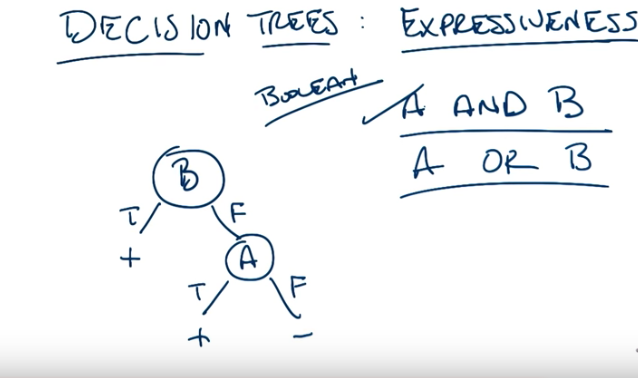 DECISION TREES : EXPRESSIVENESS
BOOLEAN
A AND B
A OR B
B
T F
+
A
T F
+ -